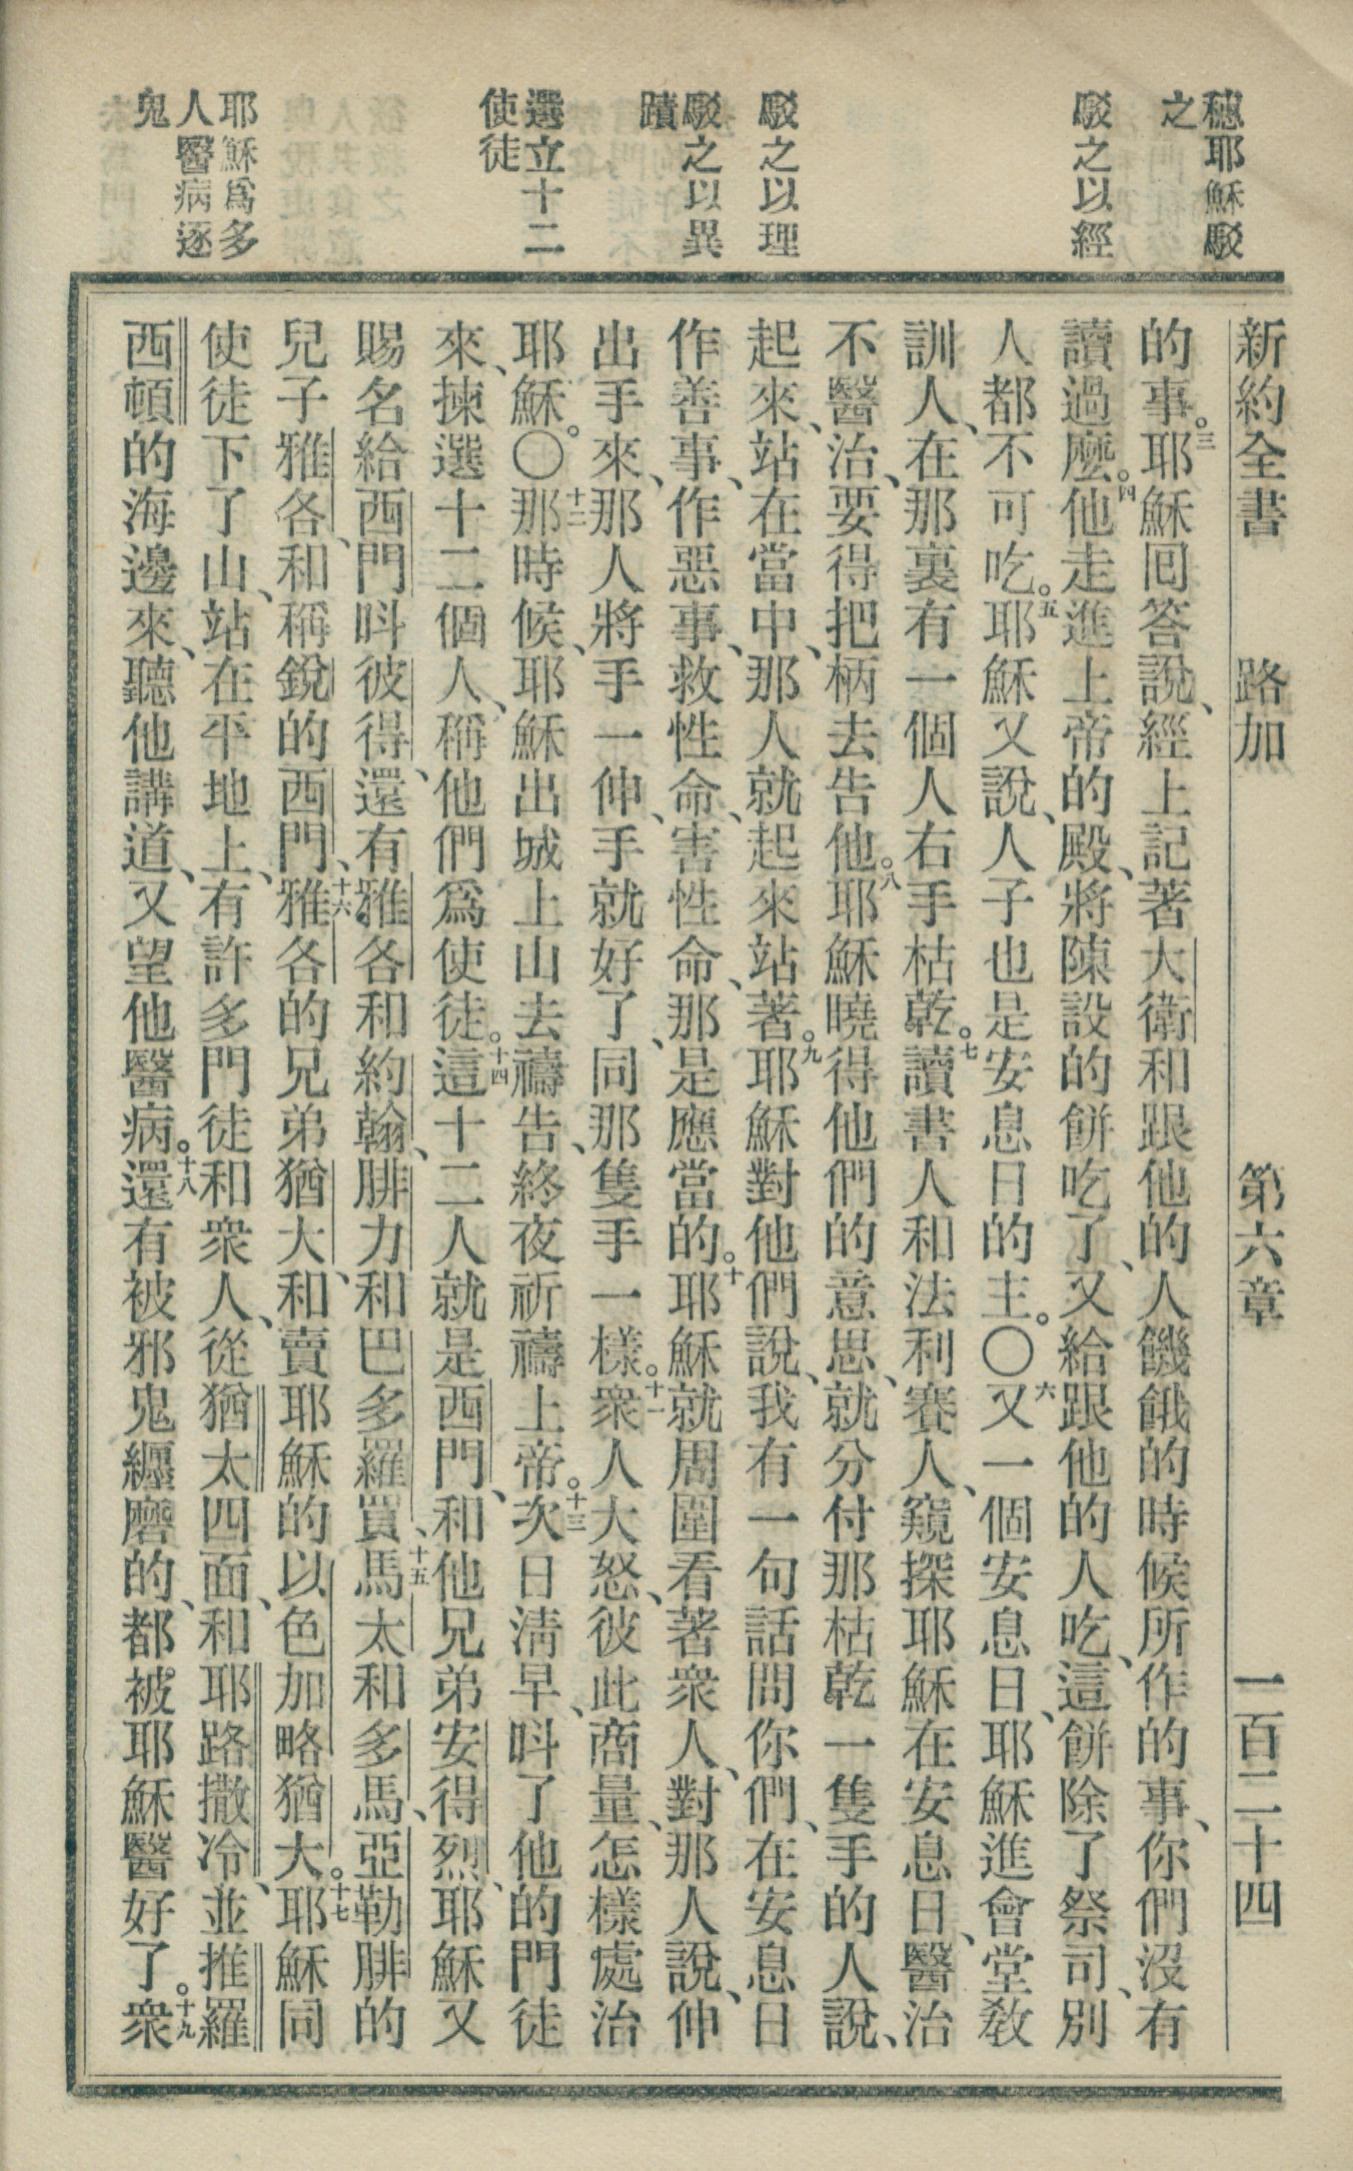 穗耶穌駁
之
駁之以經
駁之以理
駁之以異
蹟
選立十二
使徒
耶穌爲多
人醫病逐
鬼
新約全書 路加 第六章 一百二十四
的事。三耶穌回答說、經上記著大衛和跟他的人饑餓的時候所作的事、你們沒有
讀過麼。四他走進上帝的殿、將陳設的餅吃了、又給跟他的人吃、這餅除了祭司、別
人都不可吃。五耶穌又說、人子也是安息日的主。〇六又一個安息日、耶穌進會堂敎
訓人、在那裏有一個人右手枯乾。七讀書人和法利賽人、窺探耶穌在安息日、醫治
不醫治、要得把柄去告他。八耶穌曉得他們的意思、就分付那枯乾一隻手的人說、
起來、站在當中、那人就起來站著。九耶穌對他們說、我有一句話問你們、在安息日
作善事、作惡事、救性命、害性命、那是應當的。十耶穌就周圍看著衆人、對那人說、伸
出手來、那人將手一伸、手就好了、同那隻手一樣。十一衆人大怒、彼此商量、怎樣處治
耶穌。〇十二那時候、耶穌出城上山去禱告、終夜祈禱上帝。十三次日淸早、呌了他的門徒
來、揀選十二個人、稱他們爲使徒。十四這十二人就是西門、和他兄弟安得烈、耶穌又
賜名給西門呌彼得、還有雅各和約翰、腓力和巴多羅買、十五馬太和多馬、亞勒腓的
兒子雅各、和稱銳的西門、十六雅各的兄弟猶大、和賣耶穌的以色加略猶大。十七耶穌同
使徒下了山、站在平地上、有許多門徒和衆人、從猶太四面、和耶路撒冷、並推羅
西頓的海邊來、聽他講道、又望他醫病。十八還有被邪鬼纏磨的、都被耶穌醫好了。十九衆